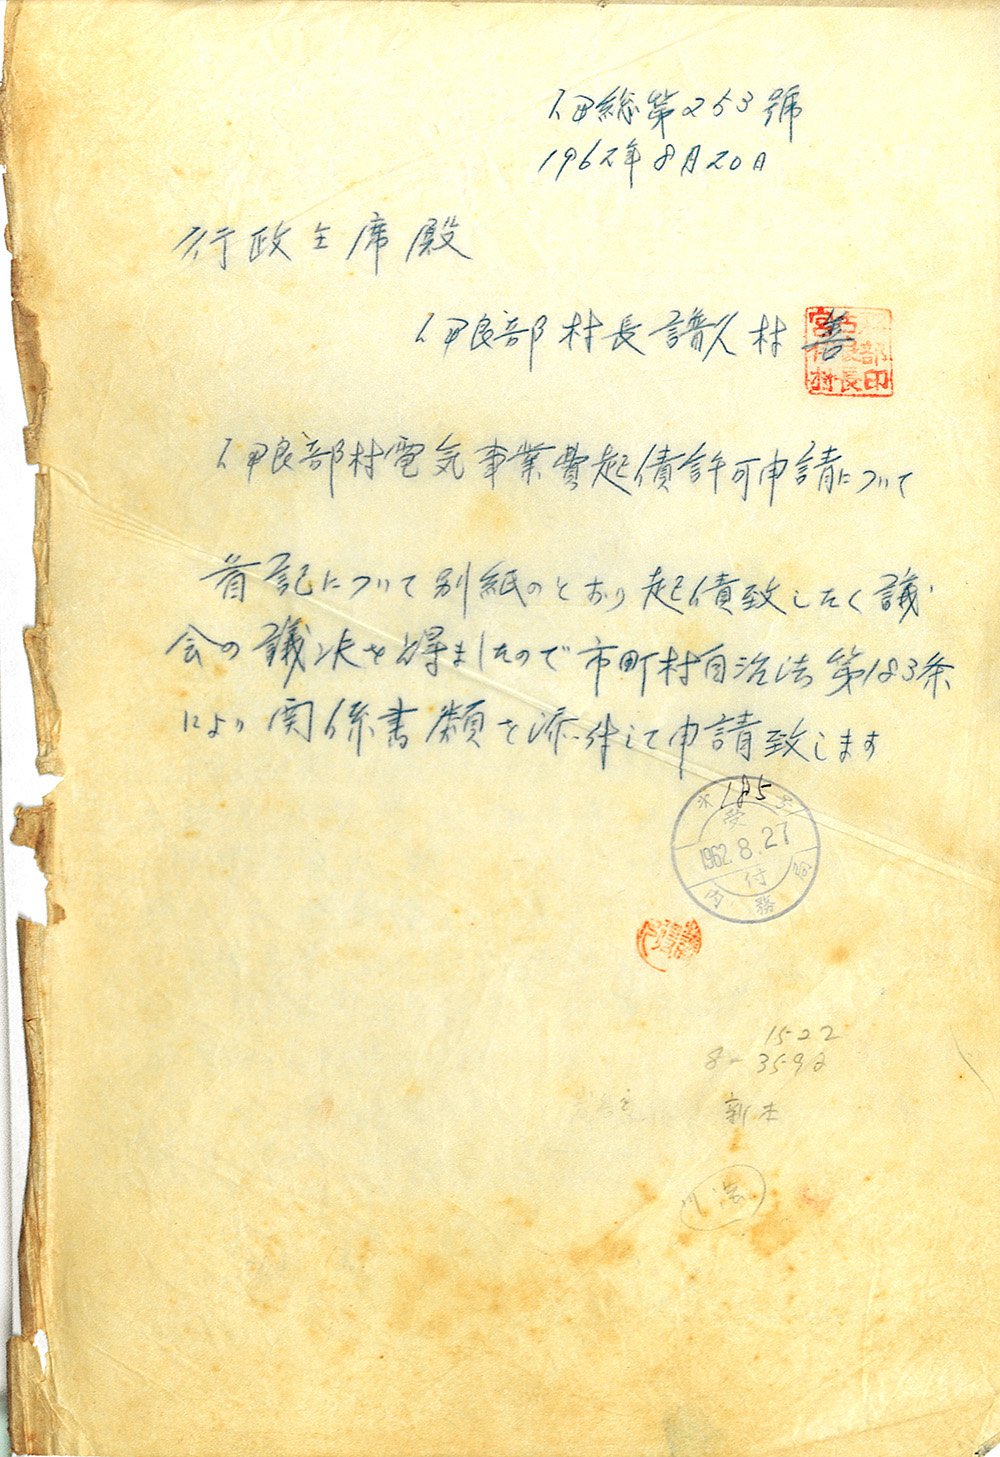 伊総第253號
1962年8月20日
行政主席殿
伊良部村長 譜久村 善
伊良部村電気事業費起債許可申請について
首記について別紙のとおり起債致したく議
会の議決を得ましたので市町村自治法第183条
により関係書類を添付して申請致します
185
受
1962.8.27
付
内務局
1522
8-3592
新本